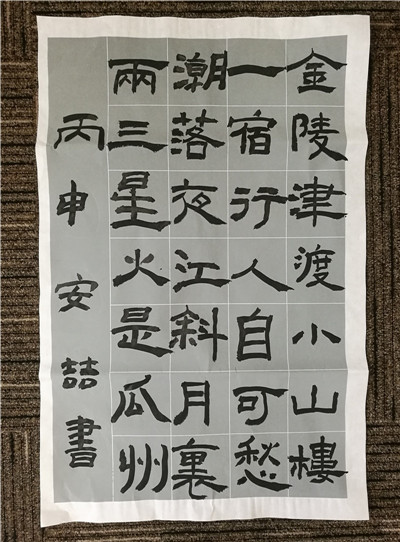 金陵津渡小山樓
一宿行人自可愁
潮落夜江斜月裏
兩三星火是瓜州
丙申安喆書